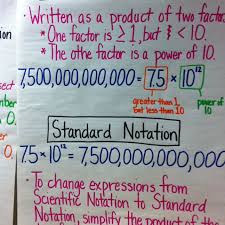 • Written as a product of two factor
* One factor is ≥ 1, but & < 10.
* The othe factor is a power of 10.
7,500,000,000,000 = 7.5 × 10¹²
greater than 1 power of
but less than 10 10
Standard Notation
7.5 × 10¹² = 7,500,000,000,000
• To change expressions from
Scientific Notation to Standard
Notation, simplify the product of the